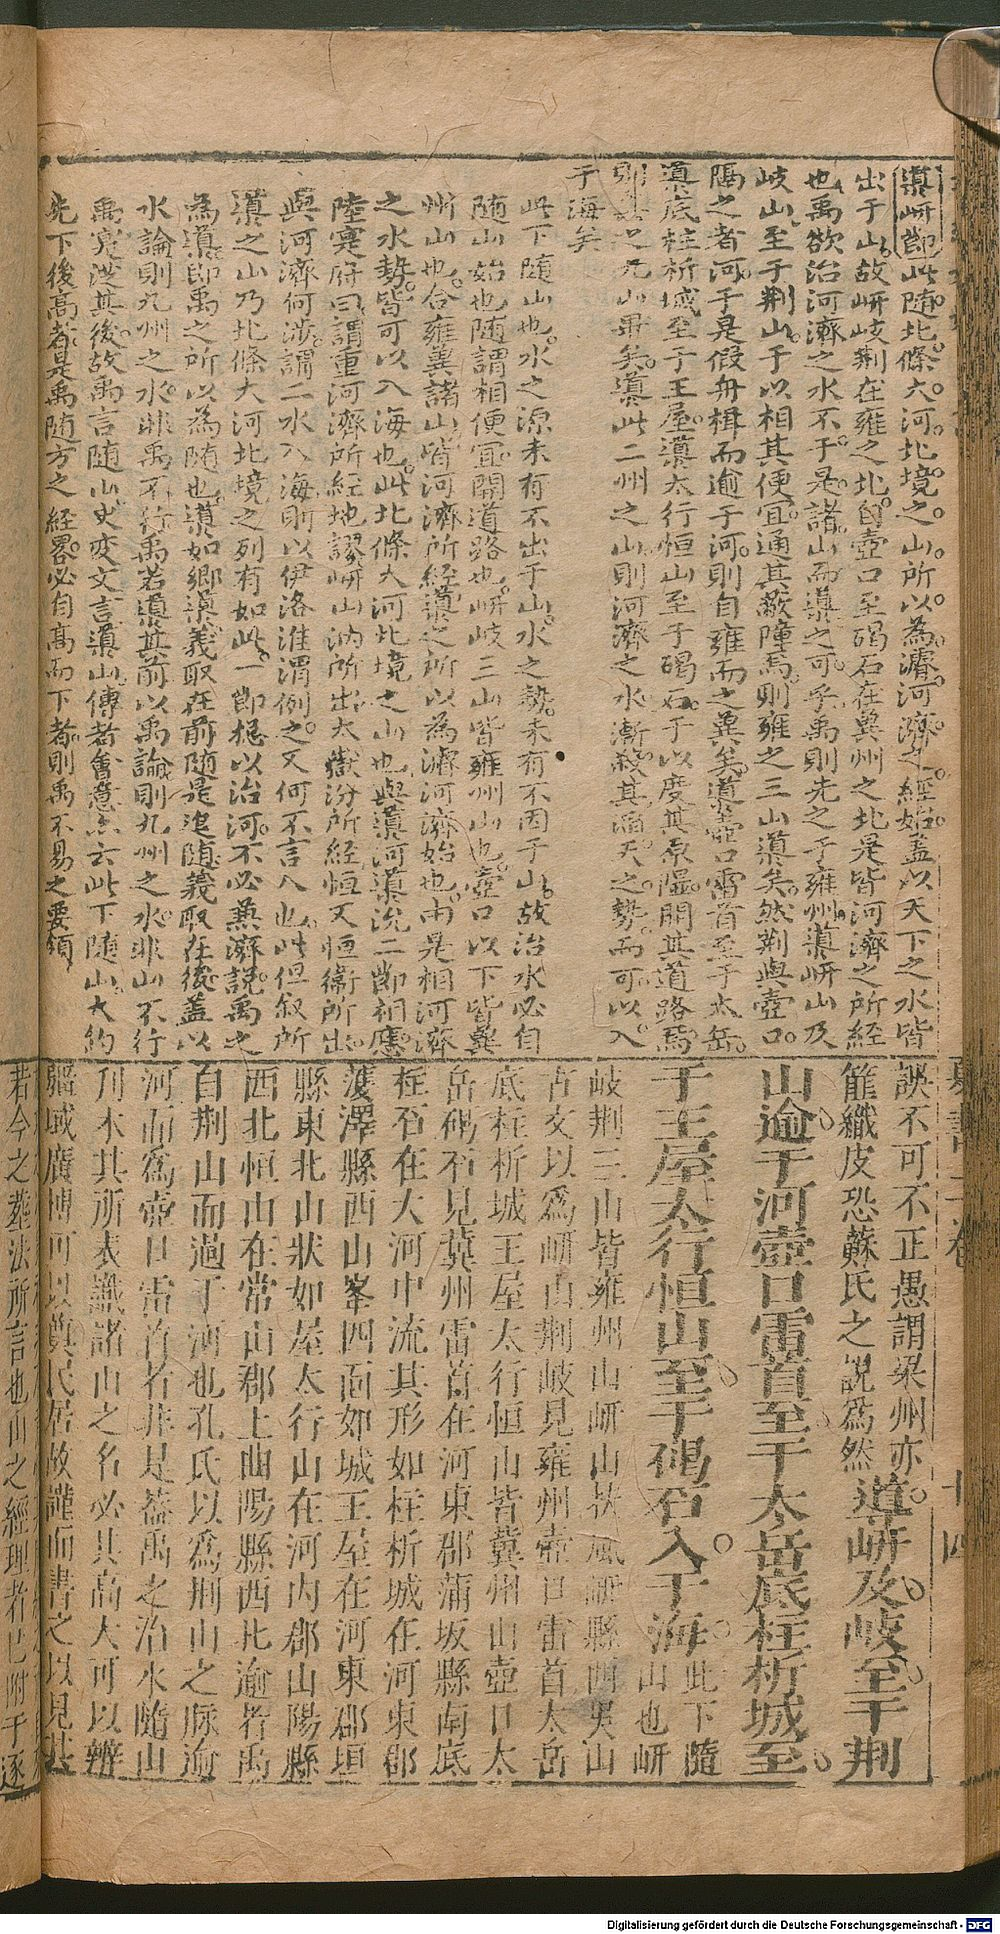 導岍節此隨北條大河北境之山所以為濬河濟之經始蓋以天下之水皆
出于山故岍岐荆在雍之北自壺口至碣石在冀州之北是皆河濟之所經
也禹欲治河濟之水不于是諸山而導之可乎禹則先之于雍州導岍山及
岐山至于荆山于以相其便宜通其蔽障焉則雍之三山導矣然荆與壺口
隔之者河于是假舟楫而逾于河則自雍而之冀矣導壺口雷首至于太岳
導底柱析城至于王屋導太行恒山至于碣石于以度其原隰開其道路焉
則之九山畢矣導此二州之山則河濟之水漸殺其滔天之勢而可以入
于海矣
此下隨山也水之源未有不出于山水之勢未有不因于山故治水必自
隨山始也隨謂相便宜開道路也岍岐三山皆雍州山也壺口以下皆冀
州山也合雍冀諸山皆河濟所經導之所以為濬河濟始也南是相河濟
之水勢皆可以入海也此北條大河北境之山也與導河導沇二節相應
陸寔府曰謂重河濟所經地謬岍山汭所出太嶽汾所經恒又恒衛所出
與河濟何涉謂二水入海則以伊洛淮渭例之又何不言入也此但叙所
導之山乃北條大河北境之列有如此一節總以治河不必兼濟說禹之
為導即禹之所以為隨也導如鄉導義取在前隨是追隨義取在後蓋以
水論則九州之水非禹不行禹若導其前以禹論則九州之水非山不行
禹寔從其後故禹言隨山史变文言導山傳者會意亦云此下隨山大約
先下後高者是禹隨方之經畧必自高而下者則禹不易之要領
夏書二卷
十四
誤不可不正愚謂梁州亦
篚織皮恐蘇氏之說為然導岍及岐至于荆
山逾于河壺口雷首至于太岳底柱析城至
于王屋太行恒山至于碣石入于海此下隨
山也岍
岐荆三山皆雍州山岍山扶風岍縣西吴山
古文以為岍山荆岐見雍州壺口雷首太岳
底柱析城王屋太行恒山皆冀州山壺口太
岳碣石見冀州雷首在河東郡蒲坂縣南底
柱石在大河中流其形如柱析城在河東郡
濩澤縣西山峯四面如城王屋在河東郡垣
縣東北山狀如屋太行山在河内郡山陽縣
西北恒山在常山郡上曲陽縣西北逾者禹
自荆山而過于河也孔氏以為荆山之脉逾
河而為壺口雷首者非是蓋禹之治水隨山
刋木其所表識諸山之名必其高大可以辨
疆域廣博可以奠民居故謹而書之以見其
若今之葬法所言也山之經理者已附于逐
Digitalisierung gefördert durch die Deutsche Forschungsgemeinschaft - DFG